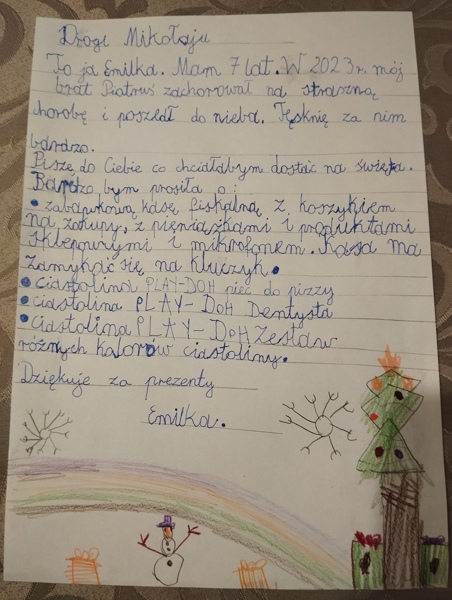 Drogi Mikołaju
To ja Emilka. Mam 7 lat. W 2023r. mój
brat Piotruś zachorował na straszną
chorobę i poszedł do nieba. Tęsknię za nim
bardzo.
Piszę do Ciebie co chciałabym dostać na święta.
Bardzo bym prosiła o:
• zabawkową kasę fiskalną z koszykiem
na zakupy, z pieniążkami i produktami
sklepowymi i mikrofonem. Kasa ma
zamykać się na kluczyk.
• ciastolina PLAY-DOH piec do pizzy
• ciastolina PLAY-DOH Dentysta
• Ciastolina PLAY-DOH Zestaw
różnych kolorów ciastoliny.
Dziękuje za prezenty
Emilka.